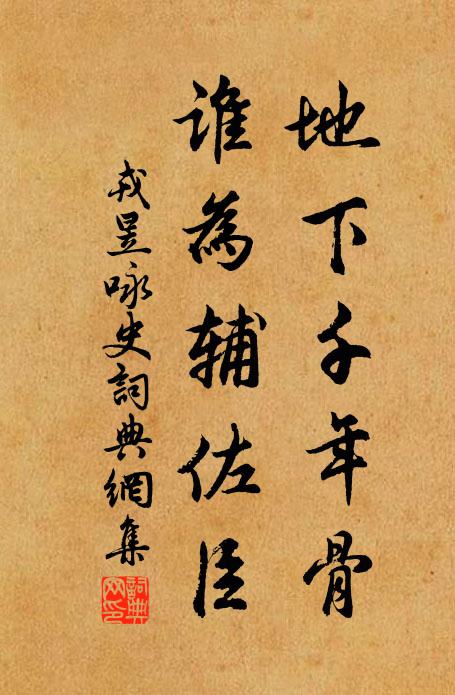 地下千年骨
誰為輔佐臣
戎昱咏史詞典網集
詞典網印